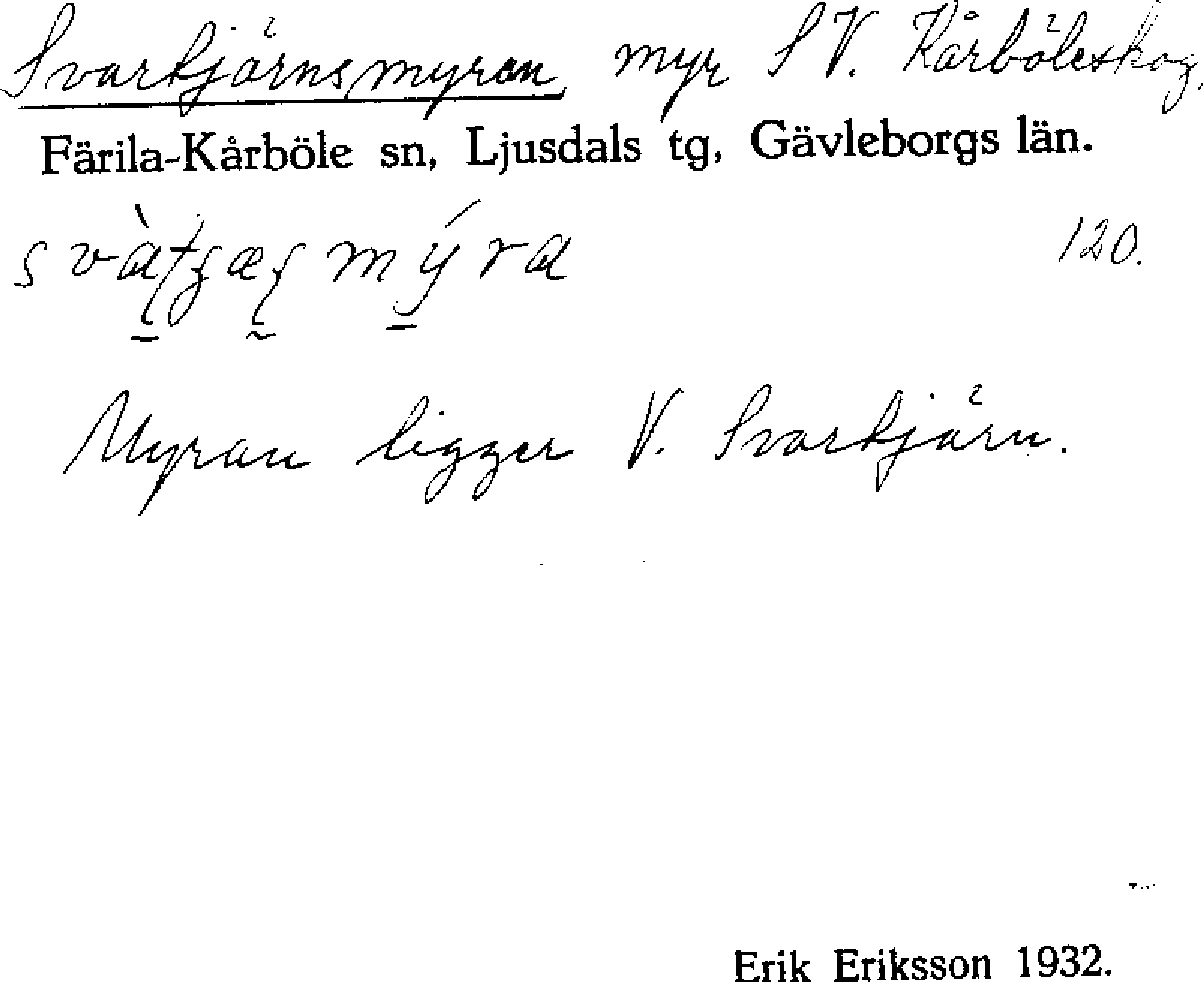 Svartjärnsmyran myr SV. Kårböleskog.
Färila-Kårböle sn, Ljusdals tg, Gävleborgs län.
120.
Myran ligger V. Svartjärn.
Erik Eriksson 1932.